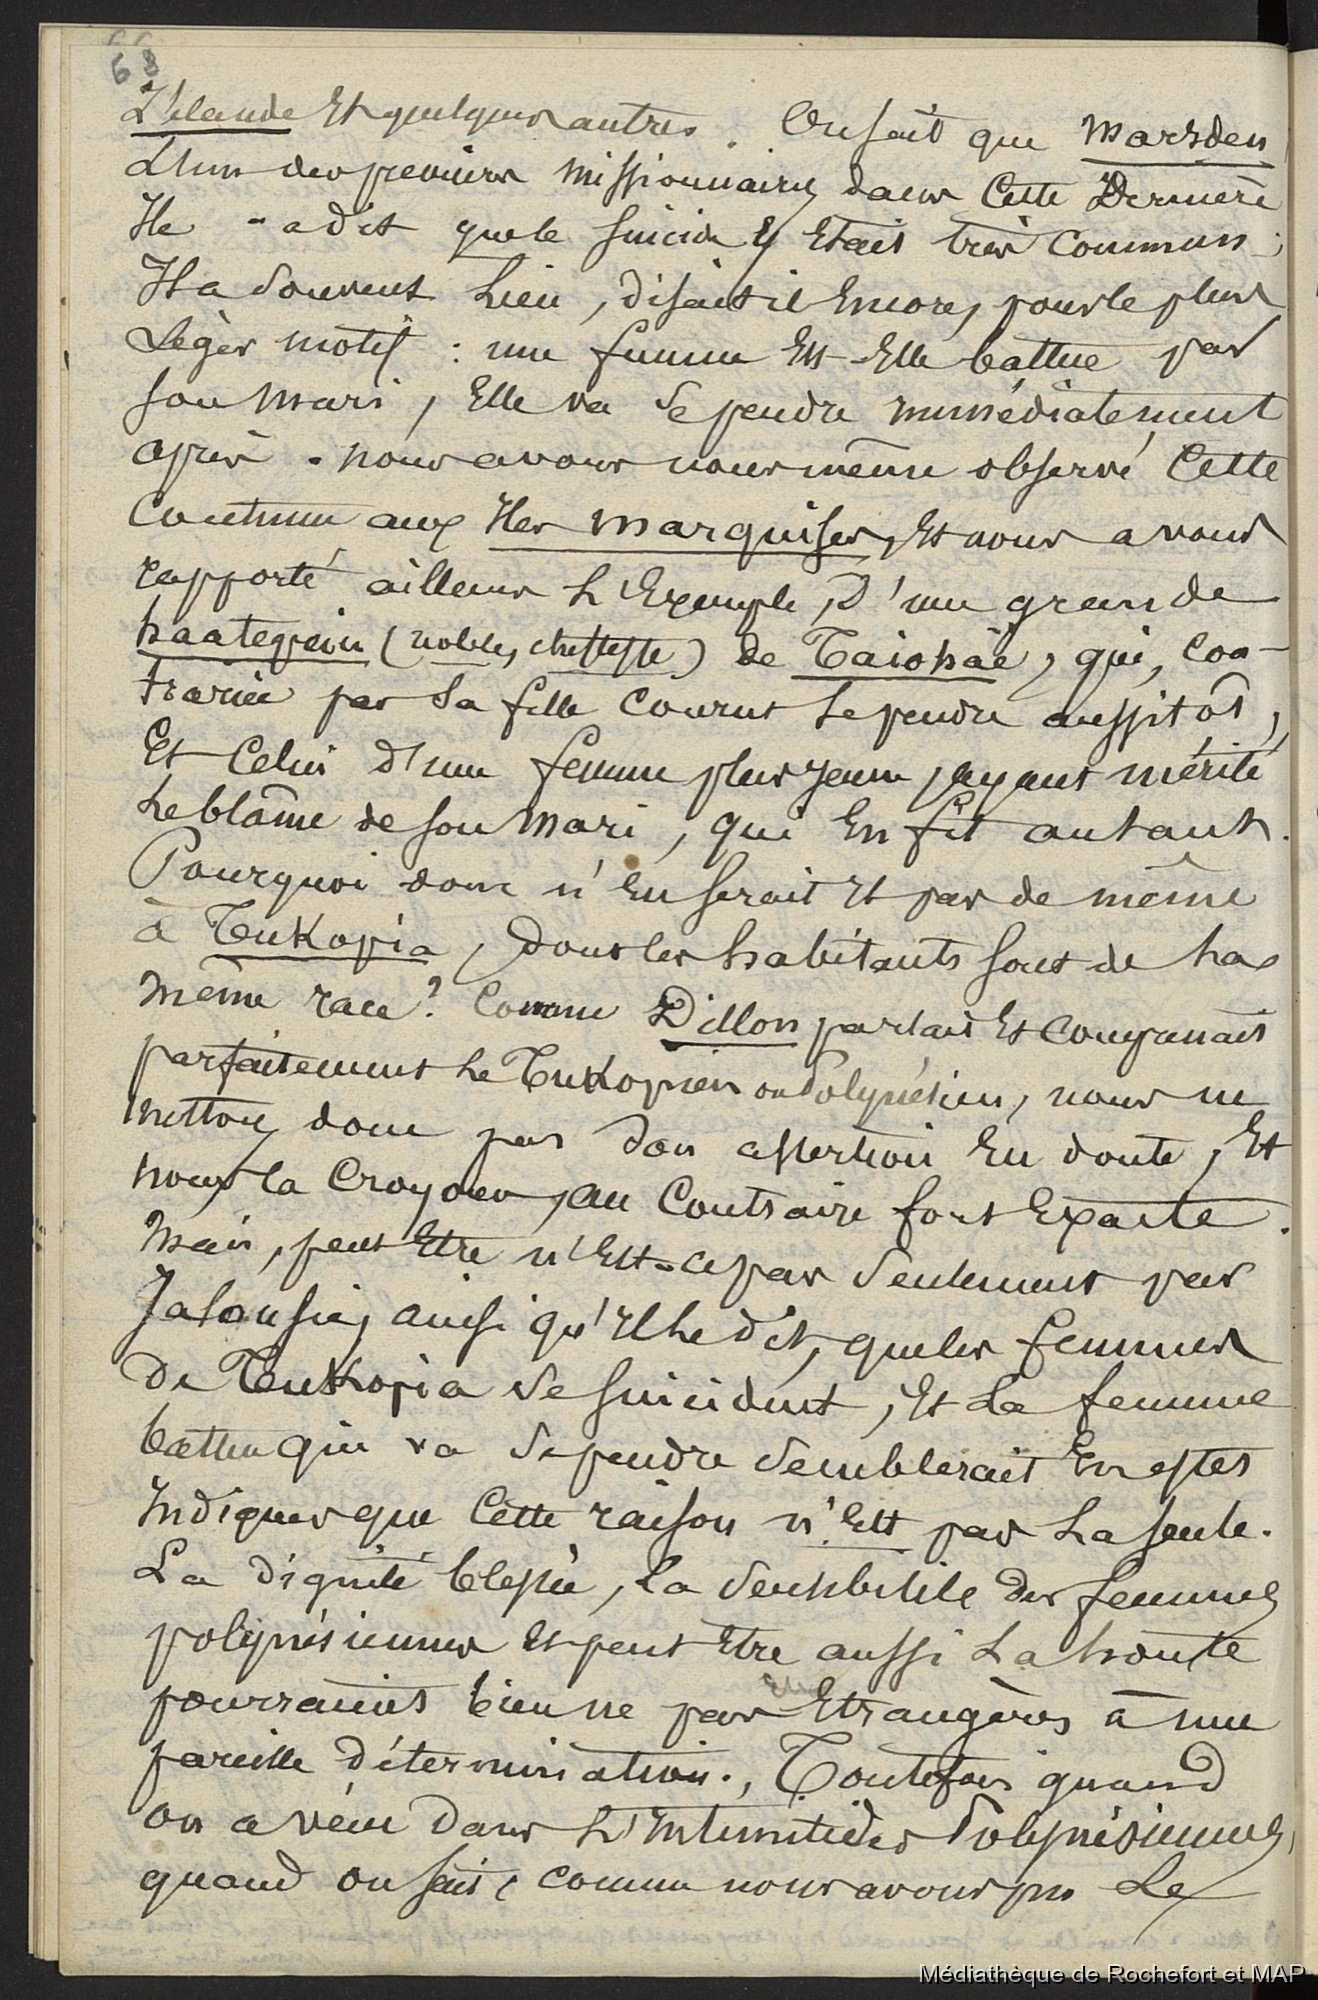 68
Z'élande et quelques autres. On sait que Marsden
L'un des premiers missionnaires dans cette Dernière
Ile - a dit que le suicide y était très commun ;
Il a souvent lieu, disait-il encore, pour le plus
Léger motif : une femme est-elle battue par
son mari, elle va se pendre immédiatement
après. nous avons nous même observé cette
Coutume aux Iles Marquises, et nous avons
rapporté ailleurs l'Exemple, d'une grande
haatepeiu (noble, cheffesse) de Taiohaë, qui, con-
trariée par sa fille courut se pendre aussitôt,
Et celui d'une femme plus jeune, ayant mérité
le blâme de son mari, qui en fit autant.
Pourquoi donc n'en serait il pas de même
à Tukopia, dont les habitants sont de la
même race ? Comme Dillon parlait et comprenait
parfaitement le Tukopien ou Polynésien, nous ne
mettons donc pas son assertion en doute, et
nous la croyons, au contraire fort exacte.
Mais, peut être n'est-ce pas seulement par
Jalousie, ainsi qu'il le dit, que les femmes
de Tukopia se suicident, et la femme
battue qui va se pendre semblerait en effet
Indiquer que cette raison n'est pas la seule.
La dignité blessée, la sensibilité des femmes
polynésiennes et peut être aussi la honte
pourraient bien ne pas être étrangères à une
pareille détermination., Toutefois quand
on a vécu dans l'intimité des Polynésiennes,
quand on sait, comme nous avons pu le
Médiathèque de Rochefort et MAP